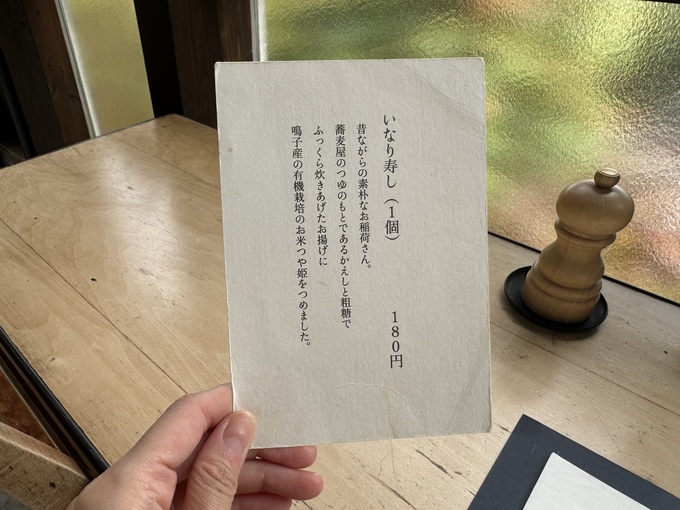 いなり寿し（1個）　180円
昔ながらの素朴なお稲荷さん。
蕎麦屋のつゆのもとであるかえしと粗糖で
ふっくら炊きあげたお揚げに
鳴子産の有機栽培のお米つや姫をつめました。